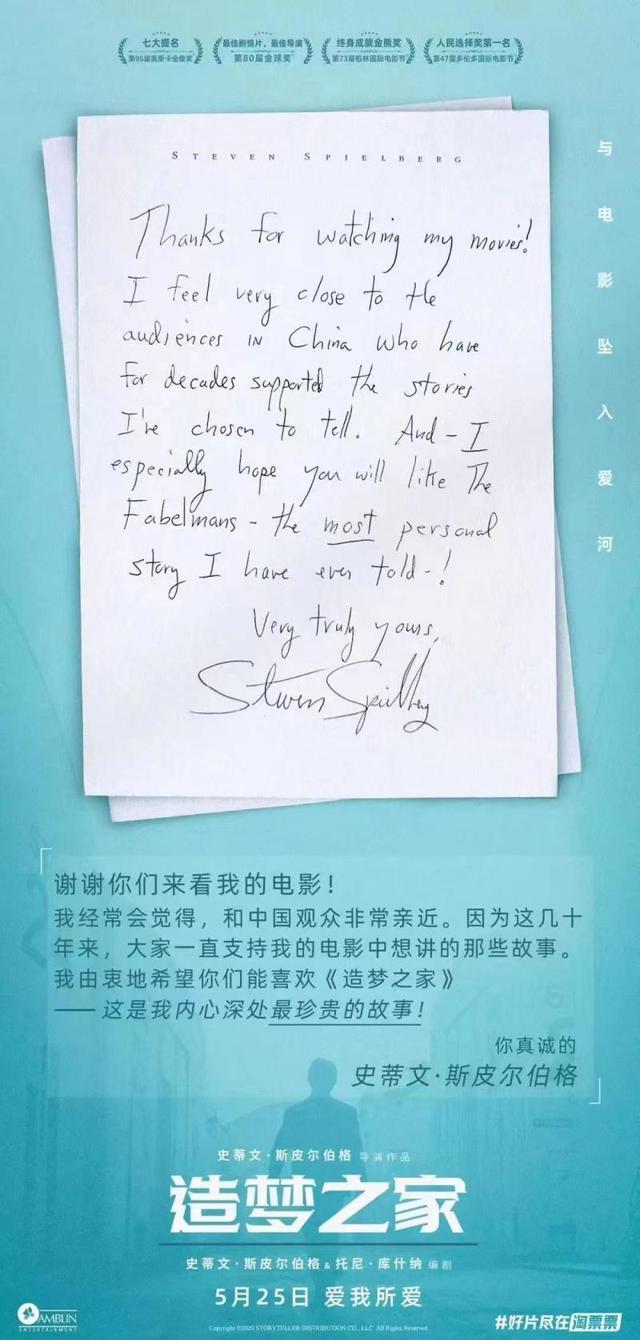 七大提名
第95届奥斯卡金像奖
最佳剧情片，最佳导演
第80届金球奖
终身成就金熊奖
第73届柏林国际电影节
人民选择奖第一名
第47届多伦多国际电影节
与电影坠入爱河
STEVEN SPIELBERG
Thanks for watching my movies!
I feel very close to the
audiences in China who have
for decades supported the stories
I've chosen to tell. And - I
especially hope you will like The
Fabelmans - the most personal
story I have ever told -!
Very truly yours,
Steven Spielberg
谢谢你们来看我的电影！
我经常会觉得，和中国观众非常亲近。因为这几十
年来，大家一直支持我的电影中想讲的那些故事。
我由衷地希望你们能喜欢《造梦之家》
—— 这是我内心深处最珍贵的故事！
你真诚的
史蒂文·斯皮尔伯格
史蒂文·斯皮尔伯格 导演作品
造梦之家
史蒂文·斯皮尔伯格 & 托尼·库什纳 编剧
5月25日 爱我所爱
AMBLIN
ENTERTAINMENT
Copyright ©2022 STORYTELLER DISTRIBUTION CO., LLC. All Rights Reserved.
#好片尽在淘票票